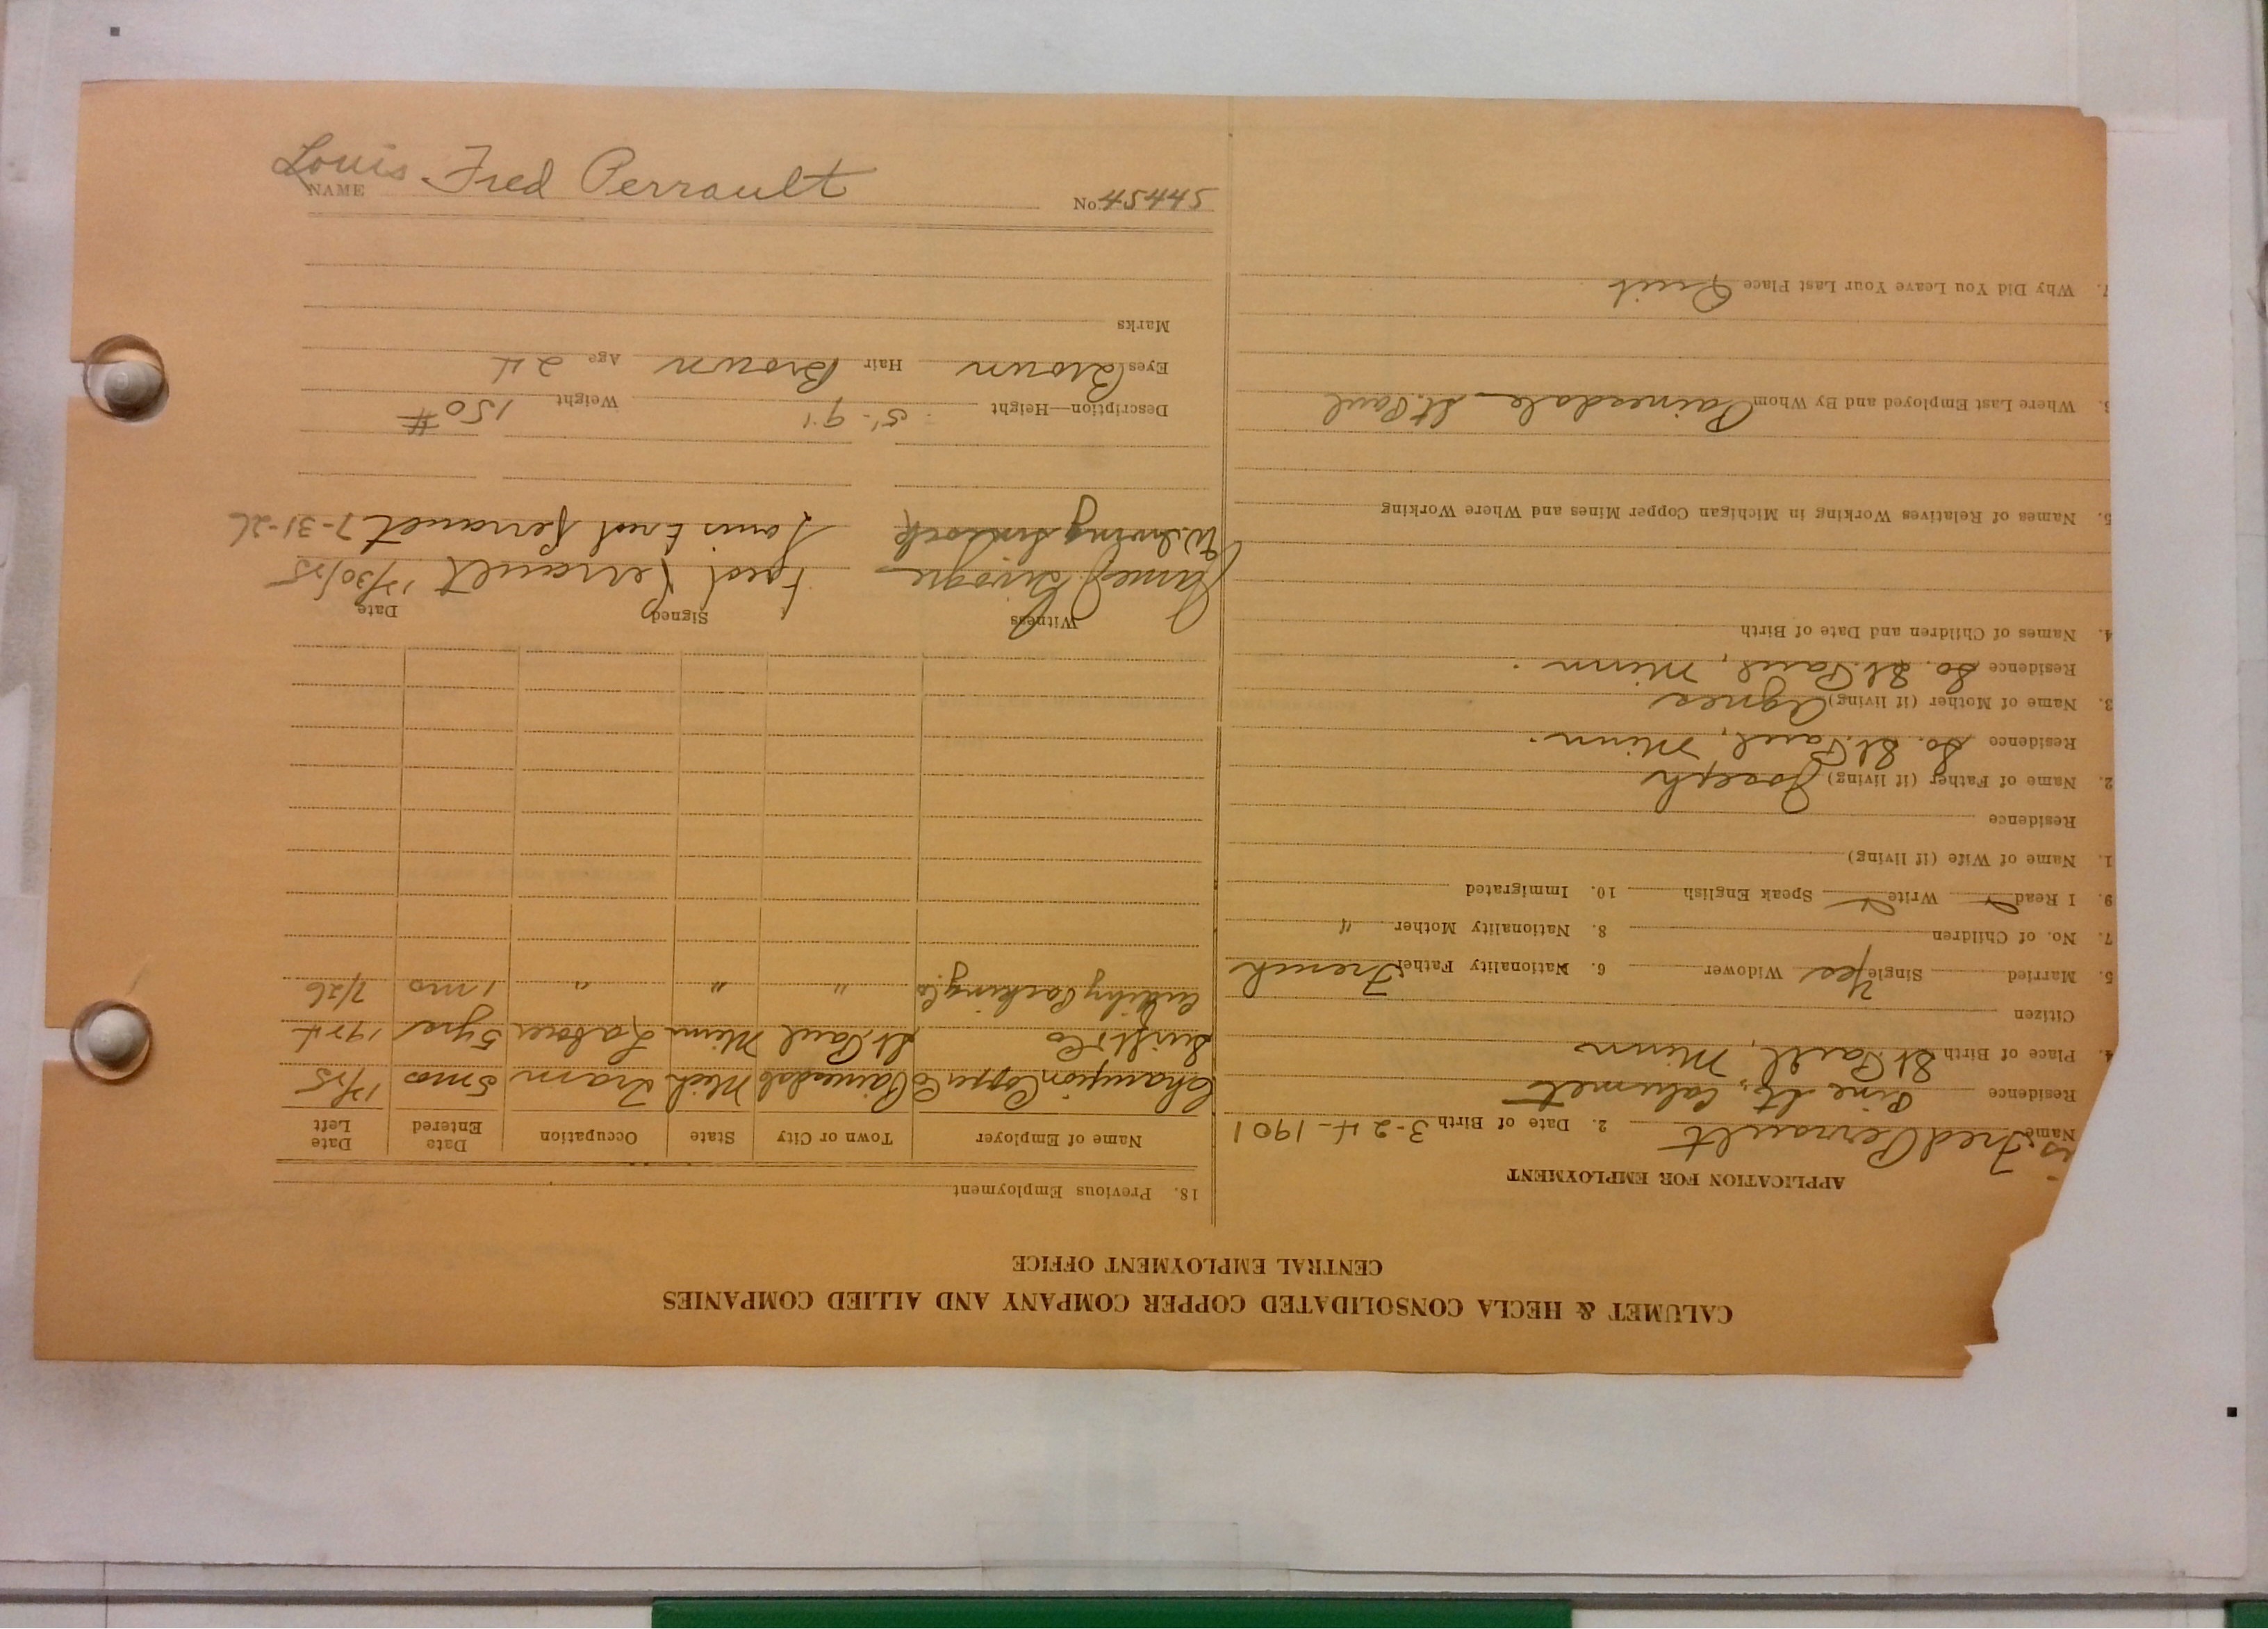 Louis Fred Perrault
NAME
No. 45445
CALUMET & HECLA CONSOLIDATED COPPER COMPANY AND ALLIED COMPANIES
CENTRAL EMPLOYMENT OFFICE
APPLICATION FOR EMPLOYMENT
Name Fred Perrault 2. Date of Birth 3-24-1901
Residence Pine St., Calumet
4. Place of Birth St. Paul, Minn
Citizen
5. Married Single Yes Widower 6. Nationality Father French
7. No. of Children 8. Nationality Mother "
9. I Read Write Speak English 10. Immigrated
1. Name of Wife (if living)
Residence
2. Name of Father (if living) Joseph
Residence So. St. Paul, Minn.
3. Name of Mother (if living) Agnes
Residence So. St. Paul, Minn.
4. Names of Children and Date of Birth
5. Names of Relatives Working in Michigan Copper Mines and Where Working
6. Where Last Employed and By Whom Painesdale St. Paul
7. Why Did You Leave Your Last Place Quit
18. Previous Employment
Name of Employer Town or City State Occupation Date Entered Date Left
Champion Copper Co Painesdale Mich Tram 5 mos 12/25
Swift & Co St. Paul Minn Laborer 5 yrs 1924
Cudihy Packing Co. " " " 1 mo 7/26
Witness Signed Date
James Fred Perrault 12/30/25
W. Irving Louis Fred Perrault 7-31-26
Description—Height 5'-9" Weight 150 #
Eyes Brown Hair Brown Age 24
Marks